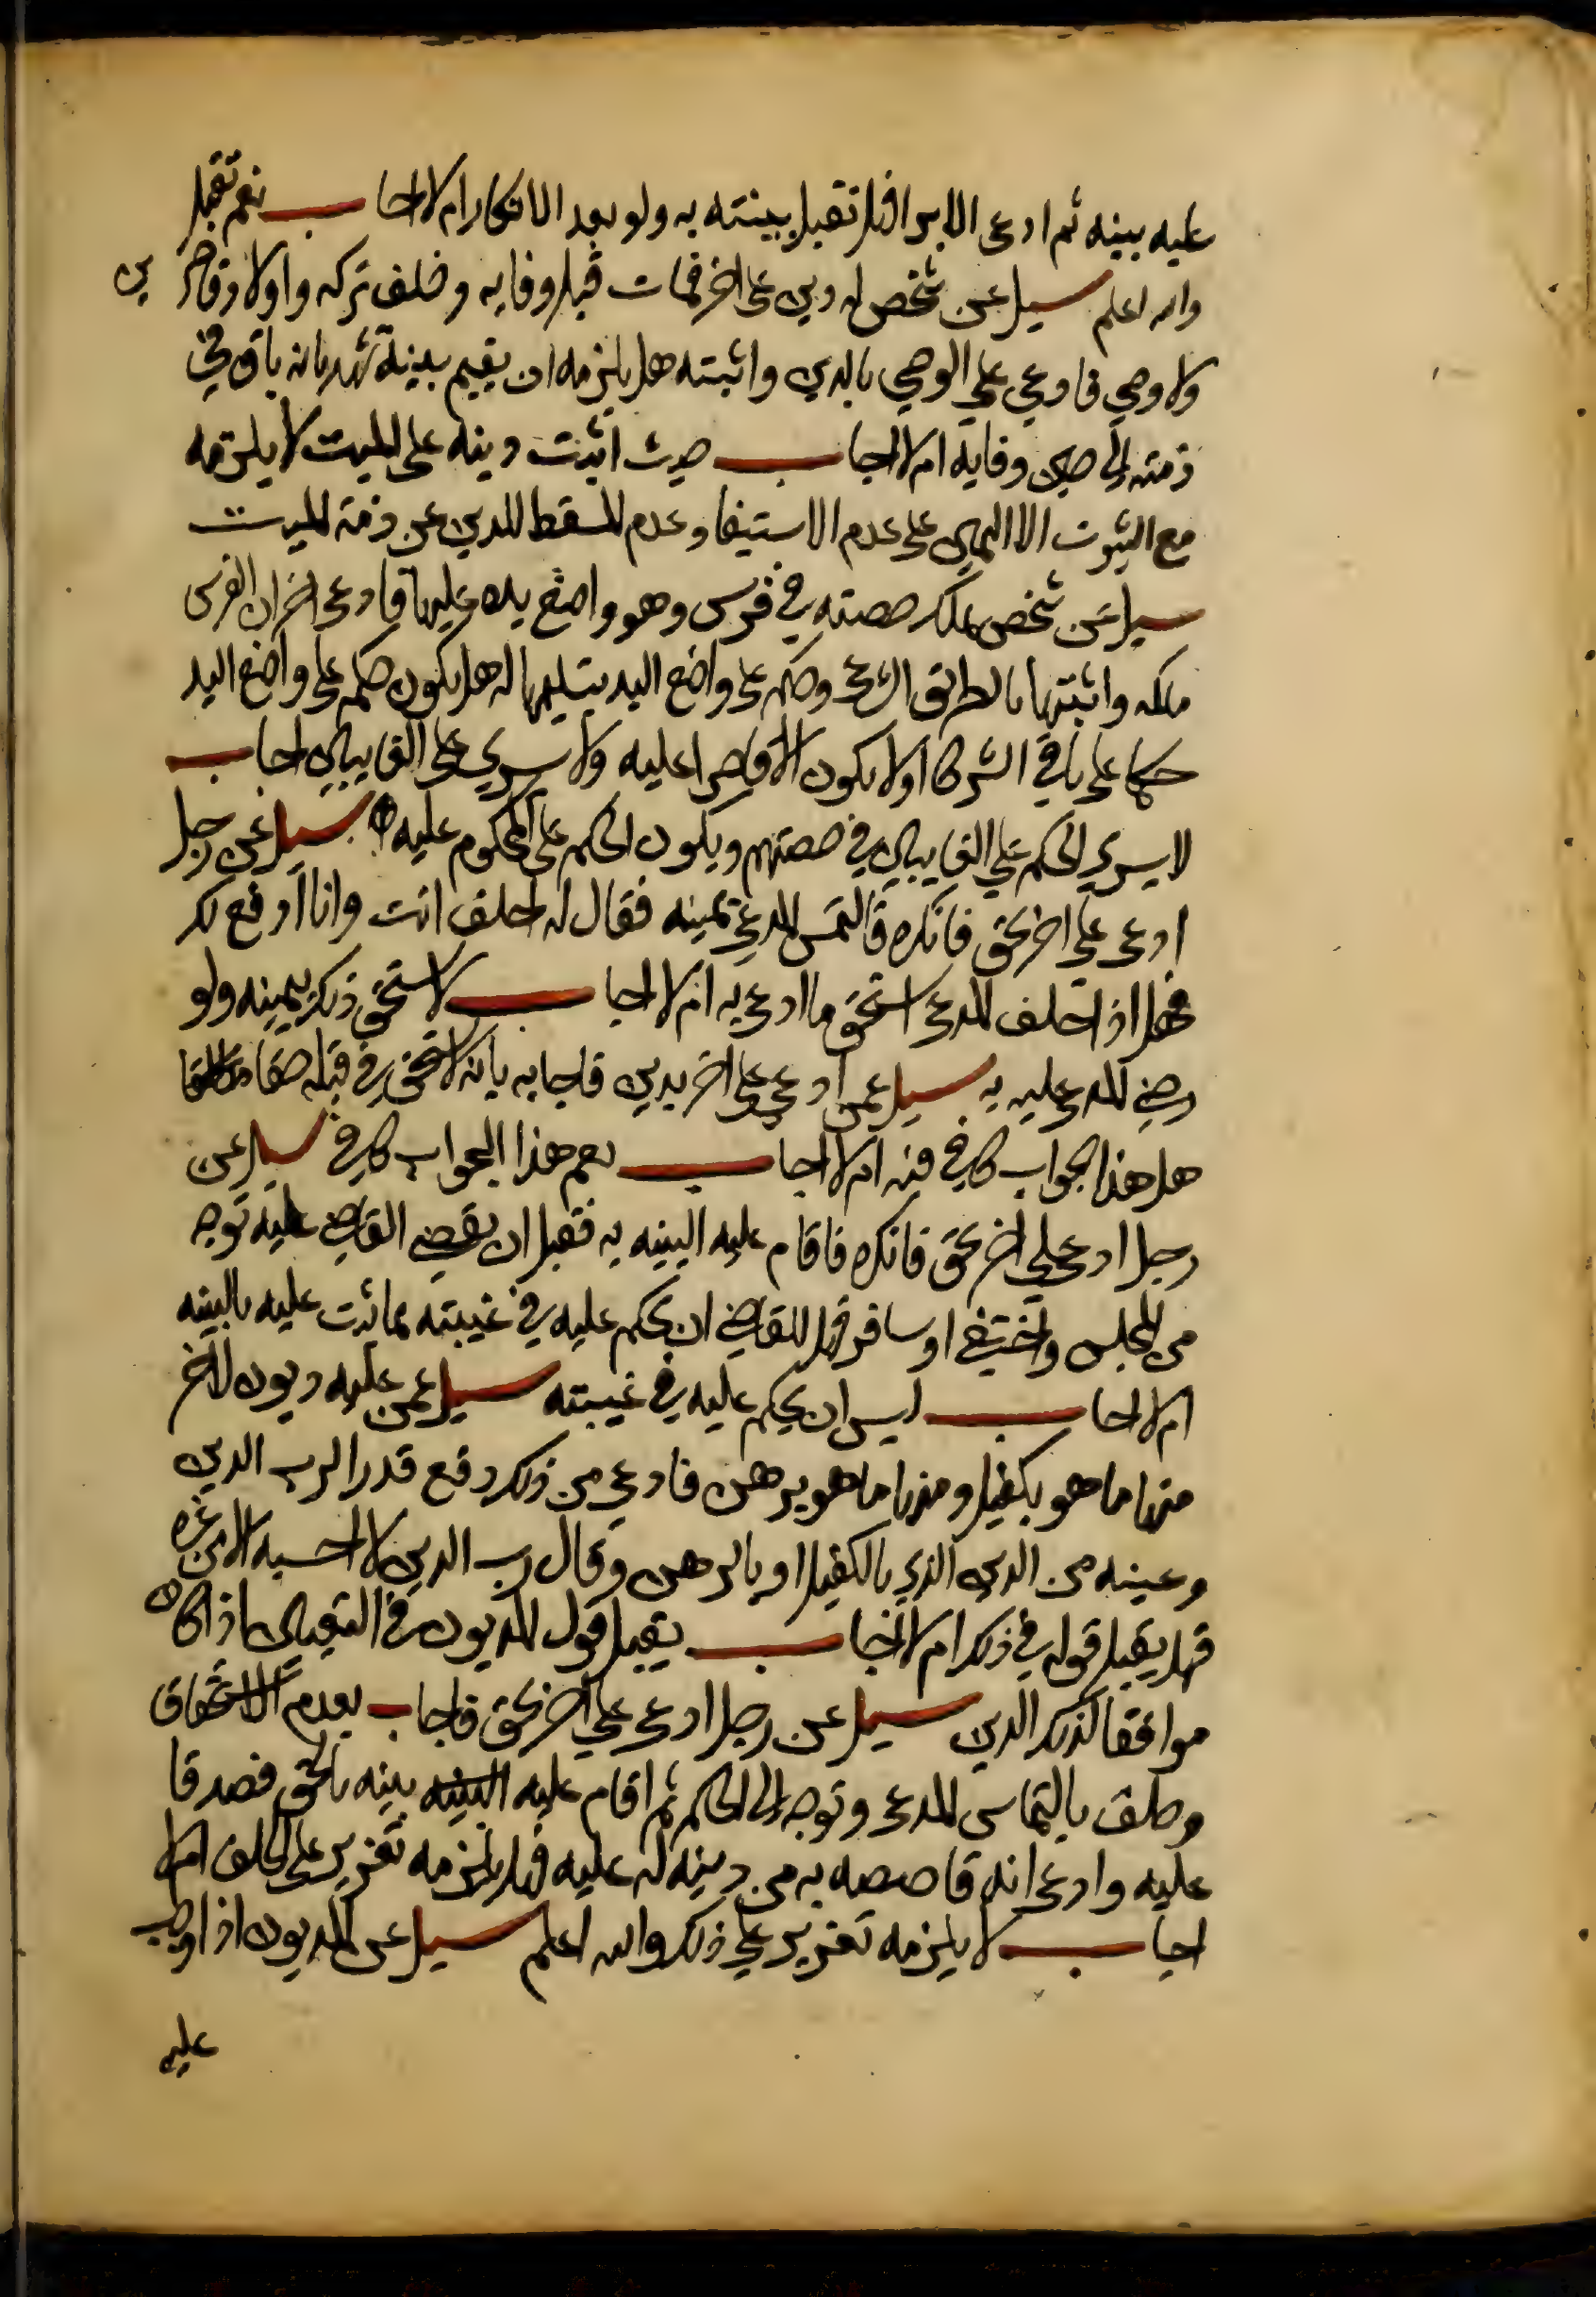 عليه بينه ثم ادعى الابرا فهل تقبل بينته به ولو بعد الانكار ام لا اجاب نعم تقبل
والله اعلم سيل عن شخص له دين على اخر فمات قبل وفايه وخلف تركه واولاد قاصرين
ولا وصي فادعى على الوصي بالدين واثبته هل يلزمه ان يقيم بينة تشهد بانه باق في
ذمته الى حين وفايه ام لا اجاب حيث اثبت دينه على الميت لا يلزمه
مع الثبوت الا اليمين على عدم الاستيفا وعدم المسقط للدين عن ذمة الميت
سيل عن شخص يملك حصته في فرس وهو واضع يده عليها فادعى اخر ان الفرس
ملكه واثبتها بالطريق الشرعي وحكم على واضع اليد بتسليمها له هل يكون حكم على واضع اليد
حكما على باقي الشركا او لا يكون الا قاصرا عليه ولا يسري على الغايبين اجاب
لا يسري الحكم على الغايبين في حصتهم ويكون الحكم على المحكوم عليه سيل عن رجل
ادعى على اخر بحق فانكره فالتمس المدعي يمينه فقال له احلف انت وانا ادفع لك
فهل اذا حلف المدعي استحق ما ادعى به ام لا اجاب لا يستحق ذلك بيمينه ولو
رضي المدعى عليه به سيل عمن ادعى على اخر بدين فاجابه بانه لا يستحق في قبله حقا مطلقا
هل هذا الجواب كافي فيه ام لا اجاب نعم هذا الجواب كافي سيل عن
رجل ادعى على اخر بحق فانكره فاقام عليه البينه به فقبل ان يقضي القاضي عليه توجه
من المجلس واختفى او سافر فهل للقاضي ان يحكم عليه في غيبته بما ثبت عليه بالبينه
ام لا اجاب ليس ان يحكم عليه في غيبته سيل عمن عليه ديون لاخر
منها ما هو بكفيل ومنها ما هو برهن فادعى من ذلك دفع قدرا لرب الدين
وعينه من الدين الذي بالكفيل او بالرهن وقال رب الدين لا احسبه الا من غيره
فهل يقبل قوله في ذلك ام لا اجاب يقبل قول المديون في التعيين اذا كان
موافقا لذلك الدين سيل عن رجل ادعى على اخر بحق فاجاب بعدم الاستحقاق
وحلف بالتماس المدعي وتوجه الى الحاكم ثم اقام عليه البينه بينه بالحق فصدقا
عليه وادعى انه قاصصه به من دينه له عليه فهل يلزمه تعزير على الحلف ام لا
اجاب لا يلزمه تعزير على ذلك والله اعلم سيل عن المديون اذا اوجب
عليه